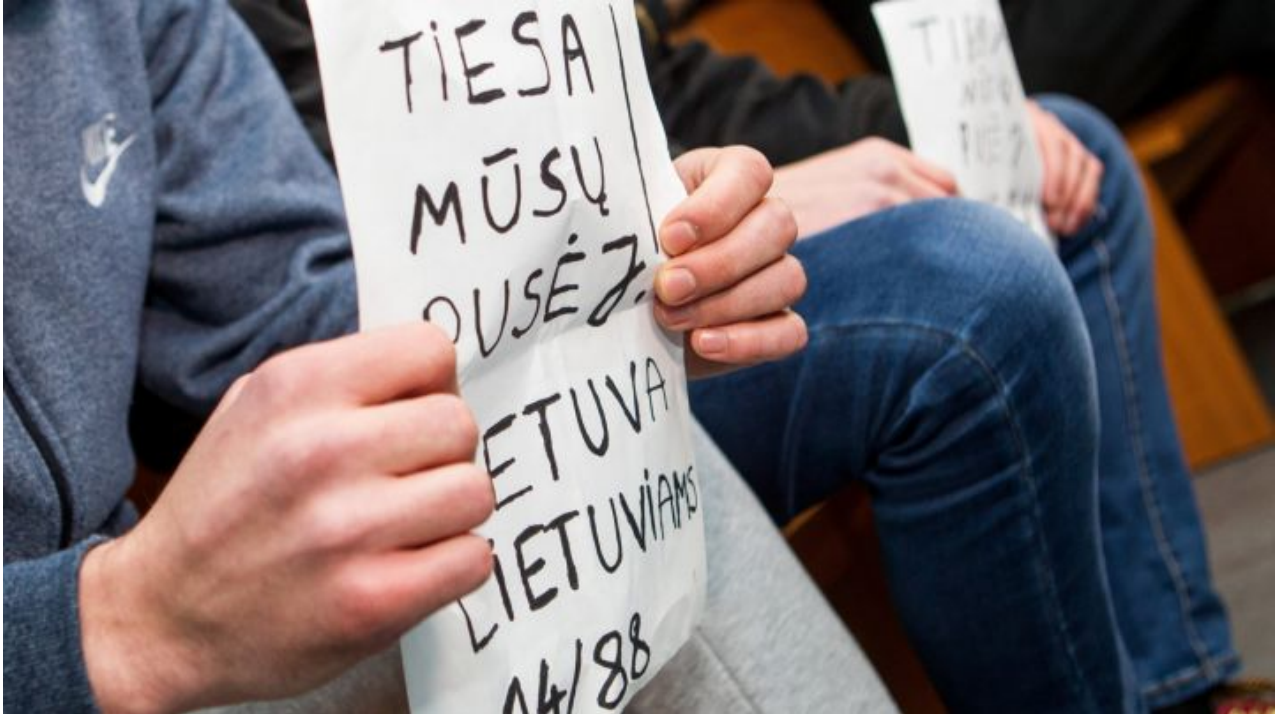 TIESA
MŪSŲ
PUSĖJ.
IETUVA
LIETUVIAMS
14/88